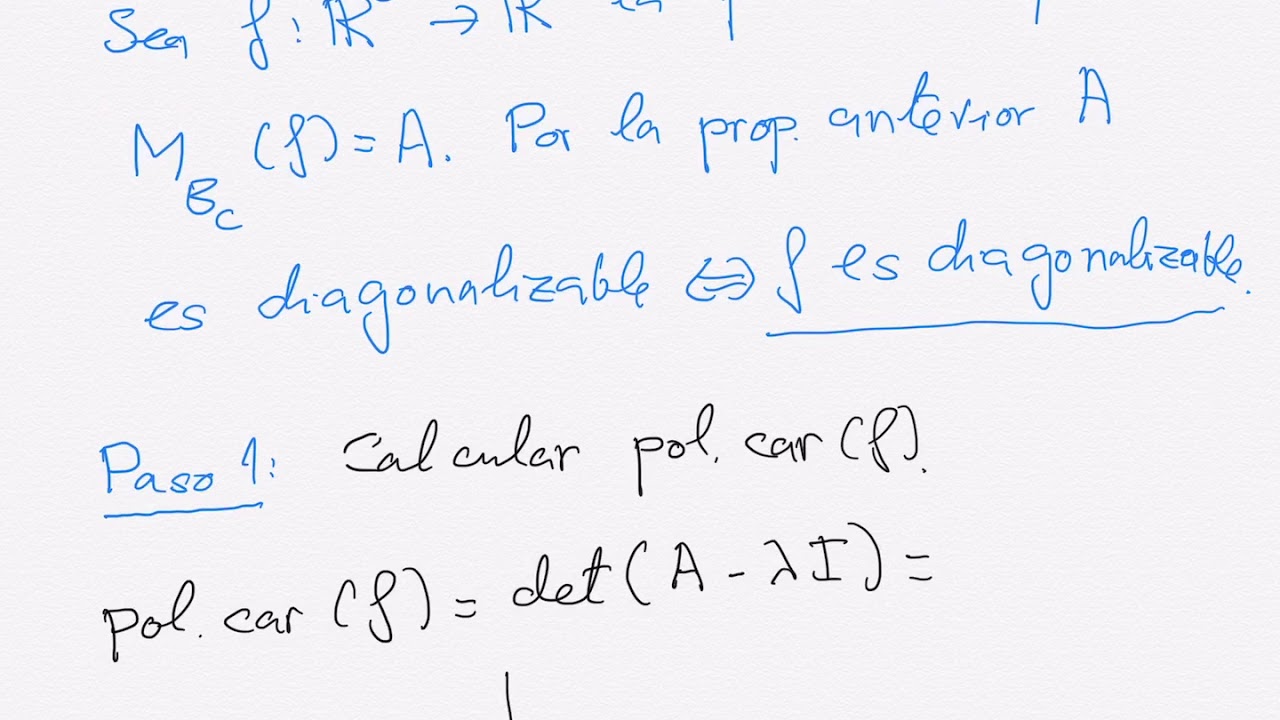 Sea f: ℝ → ℝ la
M_{B_c} (f) = A. Por la prop. anterior A
es diagonalizable ⇔ f es diagonalizable.
Paso 1: Calcular pol. car (f).
pol. car (f) = det(A - λI) =